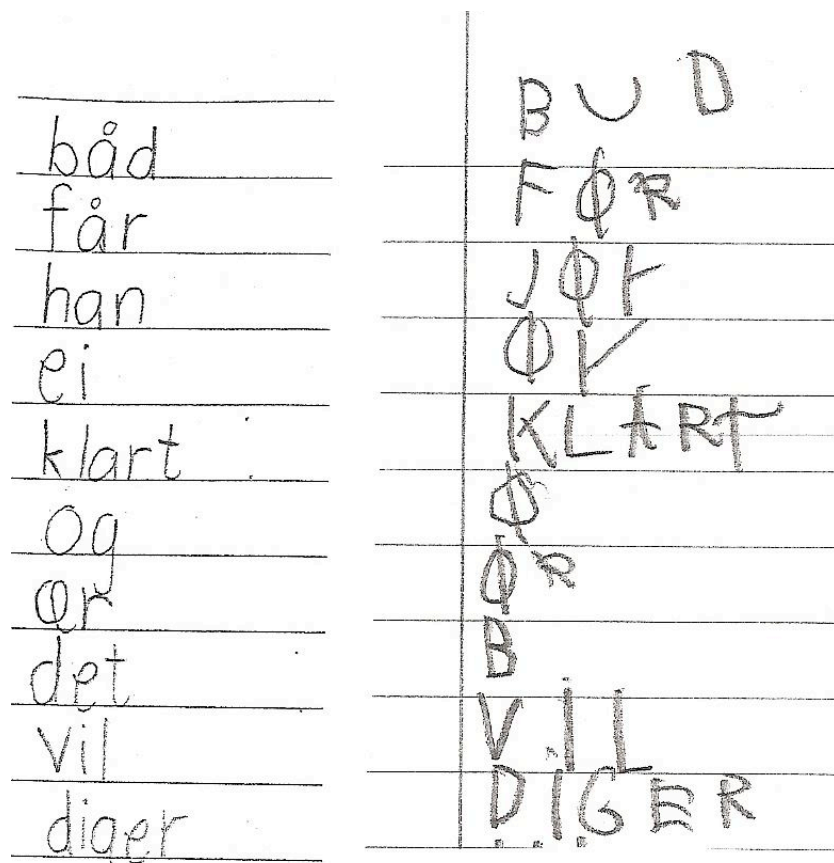 båd
får
han
ei
klart
og
er
det
vil
diger
BUD
FØR
JØT
ØY
KLART
Ø
ØR
B
VIL
DIGER